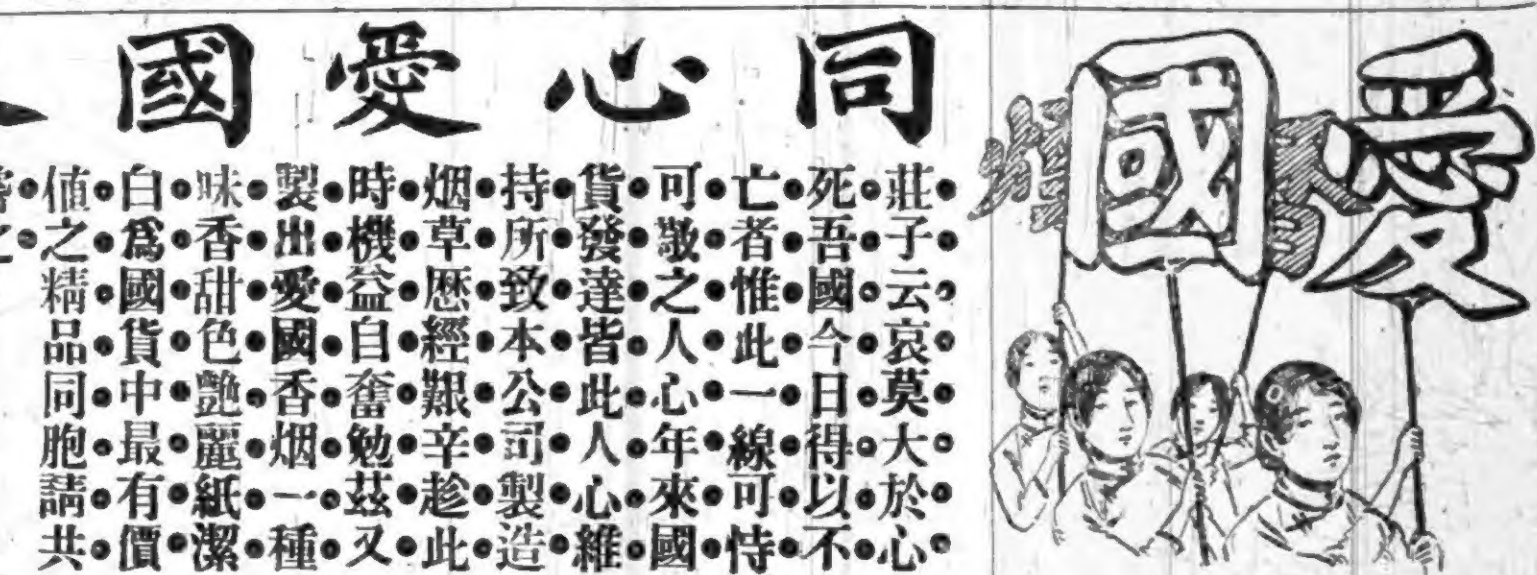 愛國
香烟
同心愛國
莊子云哀莫大於心
死吾國今日得以不
亡者惟此一線可恃
可敬之人心年來國
貨發達皆此人心維
持所致本公司製造
烟草歷經艱辛趁此
時機益自奮勉茲又
製出愛國香烟一種
味香甜色艷麗紙潔
白爲國貨中最有價
値之精品同胞請共